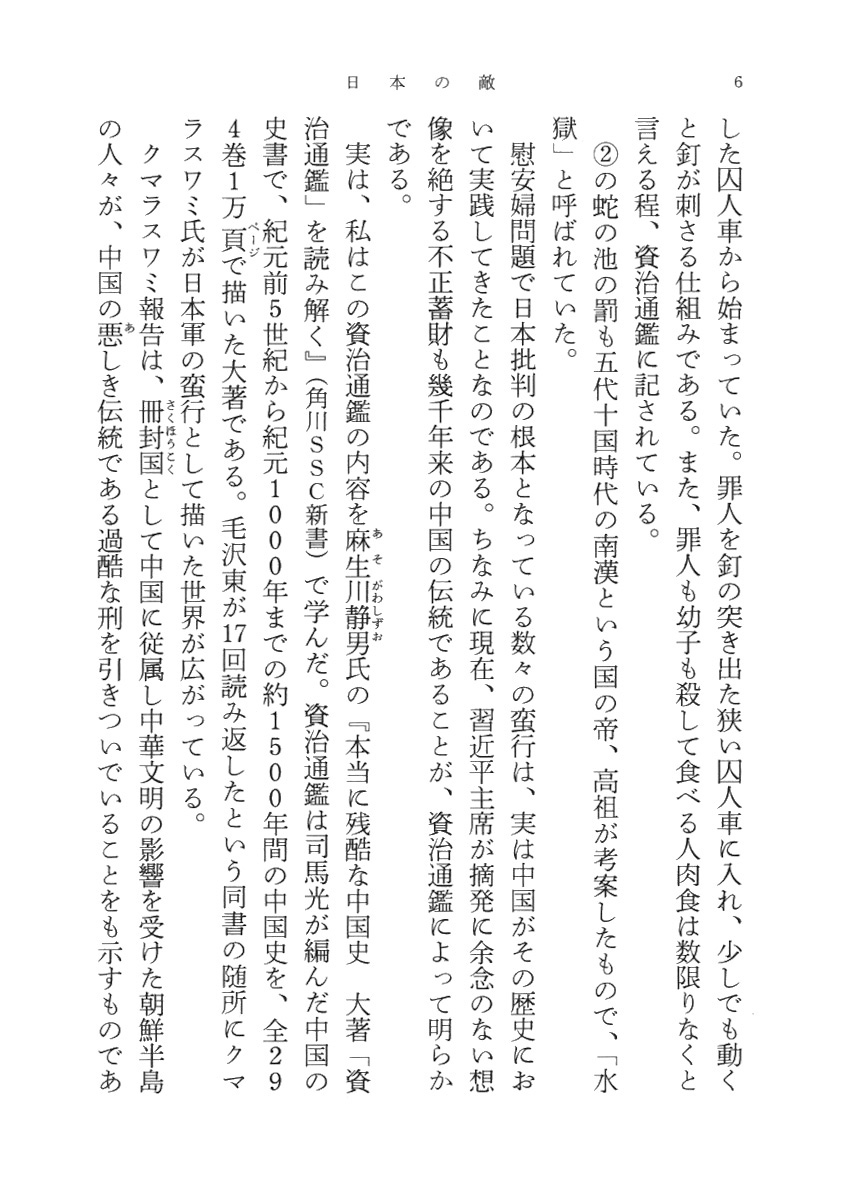 日本の敵
6
した囚人車から始まっていた。罪人を釘の突き出た狭い囚人車に入れ、少しでも動く
と釘が刺さる仕組みである。また、罪人も幼子も殺して食べる人肉食は数限りなくと
言える程、資治通鑑に記されている。
②の蛇の池の罰も五代十国時代の南漢という国の帝、高祖が考案したもので、「水
獄」と呼ばれていた。
慰安婦問題で日本批判の根本となっている数々の蛮行は、実は中国がその歴史にお
いて実践してきたことなのである。ちなみに現在、習近平主席が摘発に余念のない想
像を絶する不正蓄財も幾千年来の中国の伝統であることが、資治通鑑によって明らか
である。
実は、私はこの資治通鑑の内容を麻生川静男氏の『本当に残酷な中国史　大著「資
あそがわしずお
治通鑑」を読み解く』（角川SSC新書）で学んだ。資治通鑑は司馬光が編んだ中国の
史書で、紀元前5世紀から紀元1000年までの約1500年間の中国史を、全29
4巻1万頁で描いた大著である。毛沢東が17回読み返したという同書の随所にクマ
ページ
ラスワミ氏が日本軍の蛮行として描いた世界が広がっている。
クマラスワミ報告は、冊封国として中国に従属し中華文明の影響を受けた朝鮮半島
さくほうこく
の人々が、中国の悪しき伝統である過酷な刑を引きついでいることをも示すものであ
あ